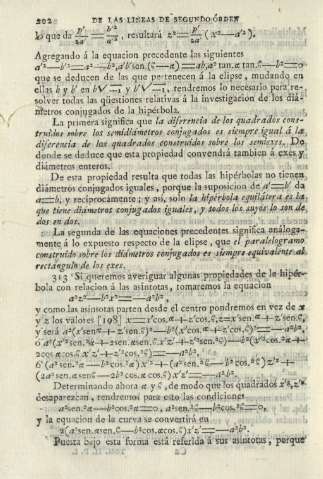 202 DE LAS LÍNEAS DE SEGUNDO ÓRDEN
lo que da p'/2a' = b'²/a'², resultará z²= p'/2a' (x²—a'²).
Agregando á la equacion precedente las siguientes
a'²—b'²=a²—b², a'b' sen.(ϐ—α)=ab, a² tan.α tan.ϐ—b²=0
que se deducen de las que pertenecen á la elipse, mudando en
ellas b y b' en b√—1 y b'√—1, tendremos lo necesario para re-
solver todas las qüestiones relativas á la investigacion de los diá-
metros conjugados de la hipérbola.
La primera significa que la diferencia de los quadrados cons-
truidos sobre los semidiámetros conjugados es siempre igual á la
diferencia de los quadrados construidos sobre los semiexes. De
donde se deduce que esta propiedad convendrá tambien á exes y
diámetros enteros.
De esta propiedad resulta que todas las hipérbolas no tienen
diámetros conjugados iguales, porque la suposicion de a'=b' da
a=b; y recíprocamente; y así, solo la hipérbola equilátera es la
que tiene diámetros conjugados iguales, y todos los suyos lo son de
dos en dos.
La segunda de las equaciones precedentes significa análoga-
mente á lo expuesto respecto de la elipse, que el paralelogramo
construido sobre los diámetros conjugados es siempre equivalente al
rectángulo de los exes.
313 Si queremos averiguar algunas propiedades de la hipér-
bola con relacion á las asíntotas, tomaremos la equacion
a²z²—b²x²=—a²b²,
y como las asíntotas parten desde el centro pondremos en vez de x
y z los valores [198] x=x'cos.α+z'cos.ϐ, z=x'sen.α+z'sen.ϐ,
y será a²(x'sen.α+z'sen.ϐ)²—b²(x'cos.α+z'cos.ϐ)²=—a²b²,
Determinando ahora α y ϐ, de modo que los quadrados x'², z'²
desaparezcan, tendremos para esto las condiciones
a²sen.²α—b²cos.²α=0, a²sen.²ϐ—b²cos.²ϐ=0,
y la equacion de la curva se convertirá en
2(a²sen.αsen.ϐ—b²cos.αcos.ϐ)x'z'=—a²b².
Puesta bajo esta forma está referida á sus asíntotas, porque